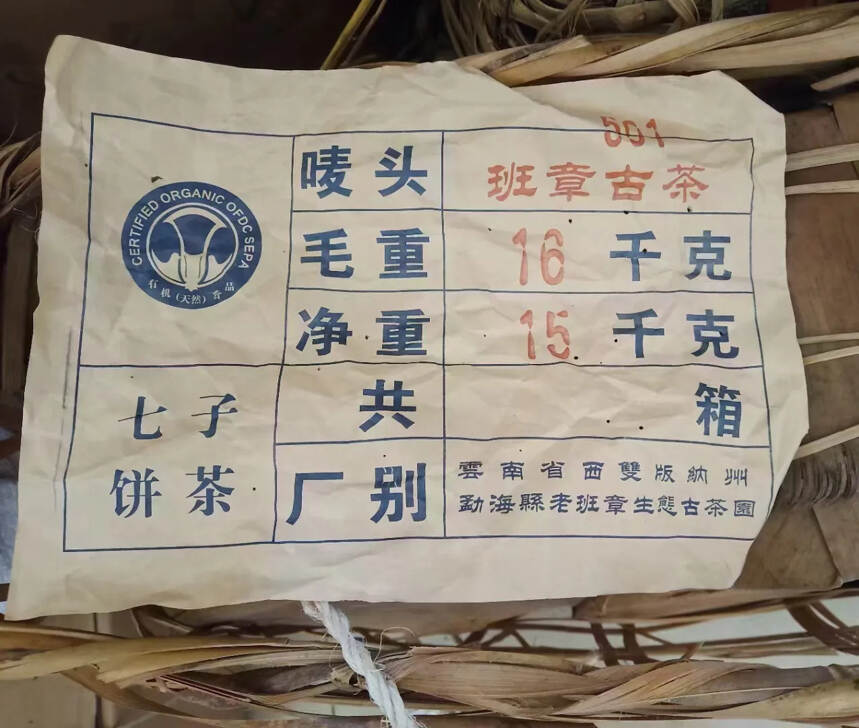 CERTIFIED ORGANIC OFDC SEPA
有机(天然)食品
七子
饼茶
501
唛头 班章古茶
毛重 16 千克
净重 15 千克
共 箱
厂别 雲南省西雙版納州
勐海縣老班章生態古茶園